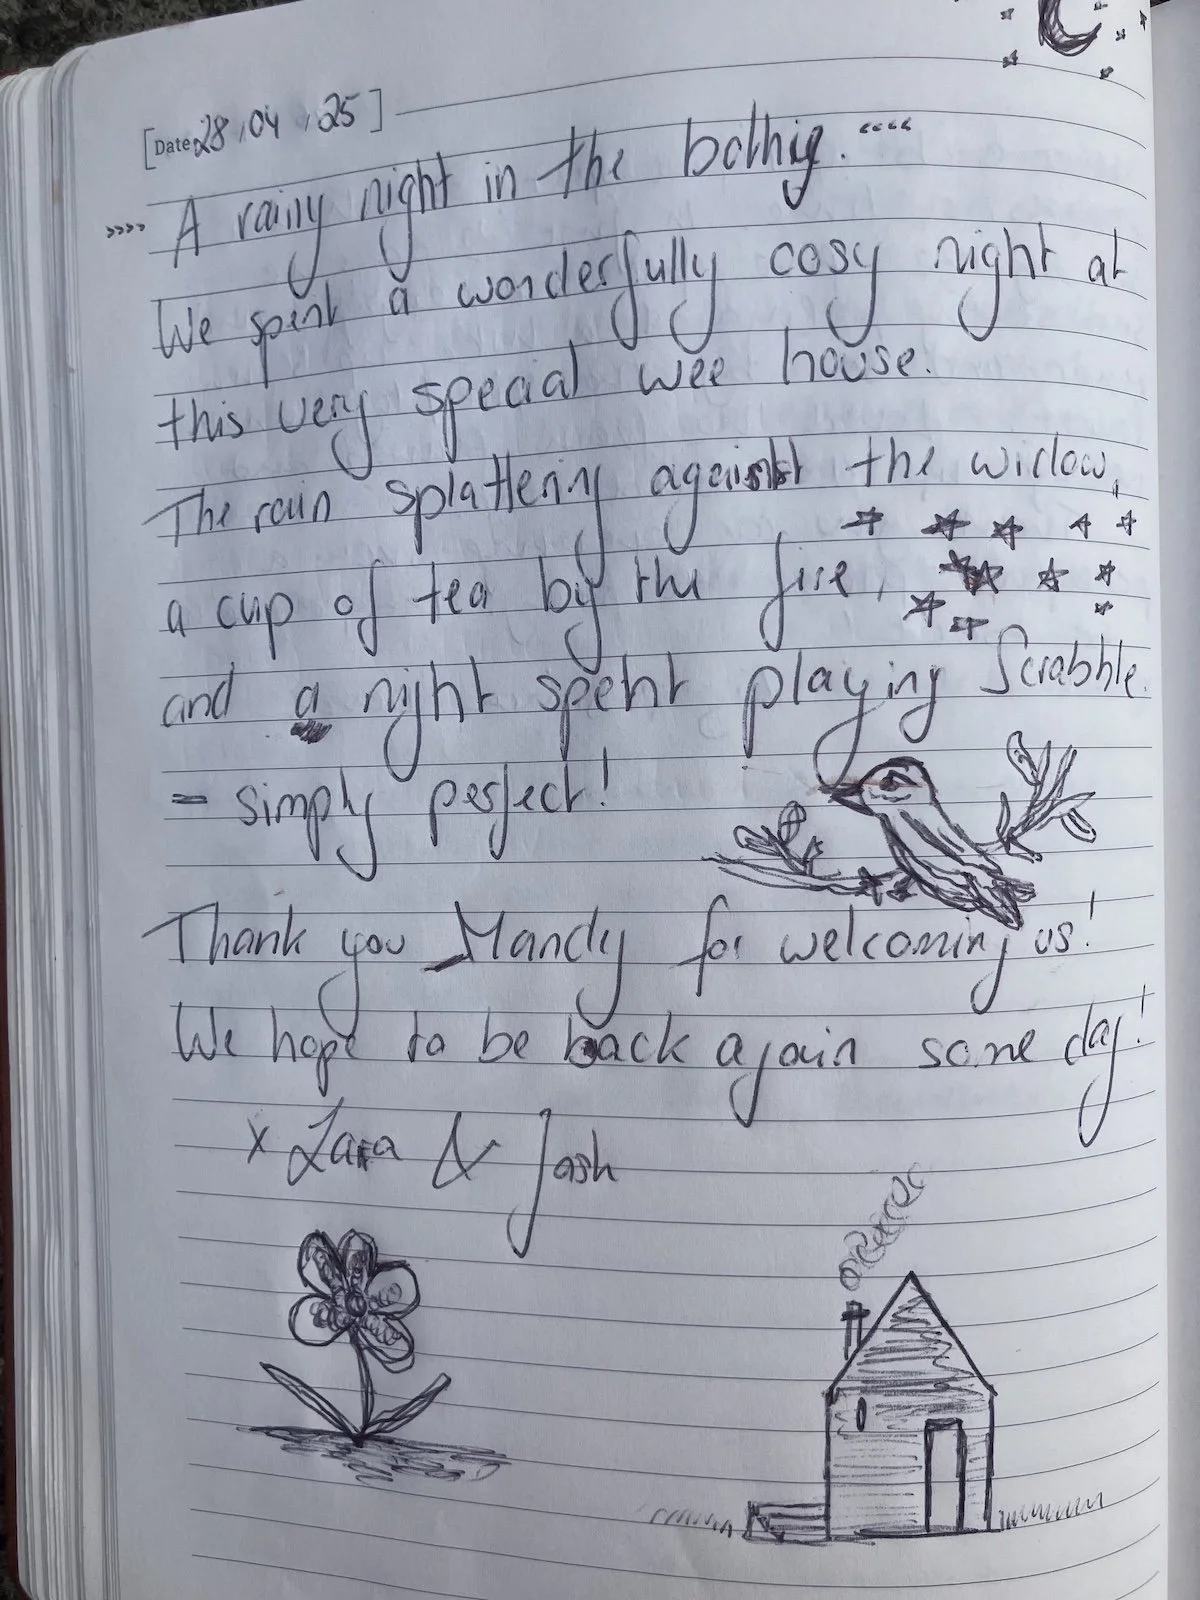 [Date 28.04.25]
>>>> A rainy night in the bothy. <<<<
We spent a wonderfully cosy night at
this very special wee house.
The rain splattering against the widow,
a cup of tea by the fire,
and a night spent playing Scrabble
= simply perfect!
Thank you Mandy for welcoming us!
We hope to be back again some day!
x Lara & Josh